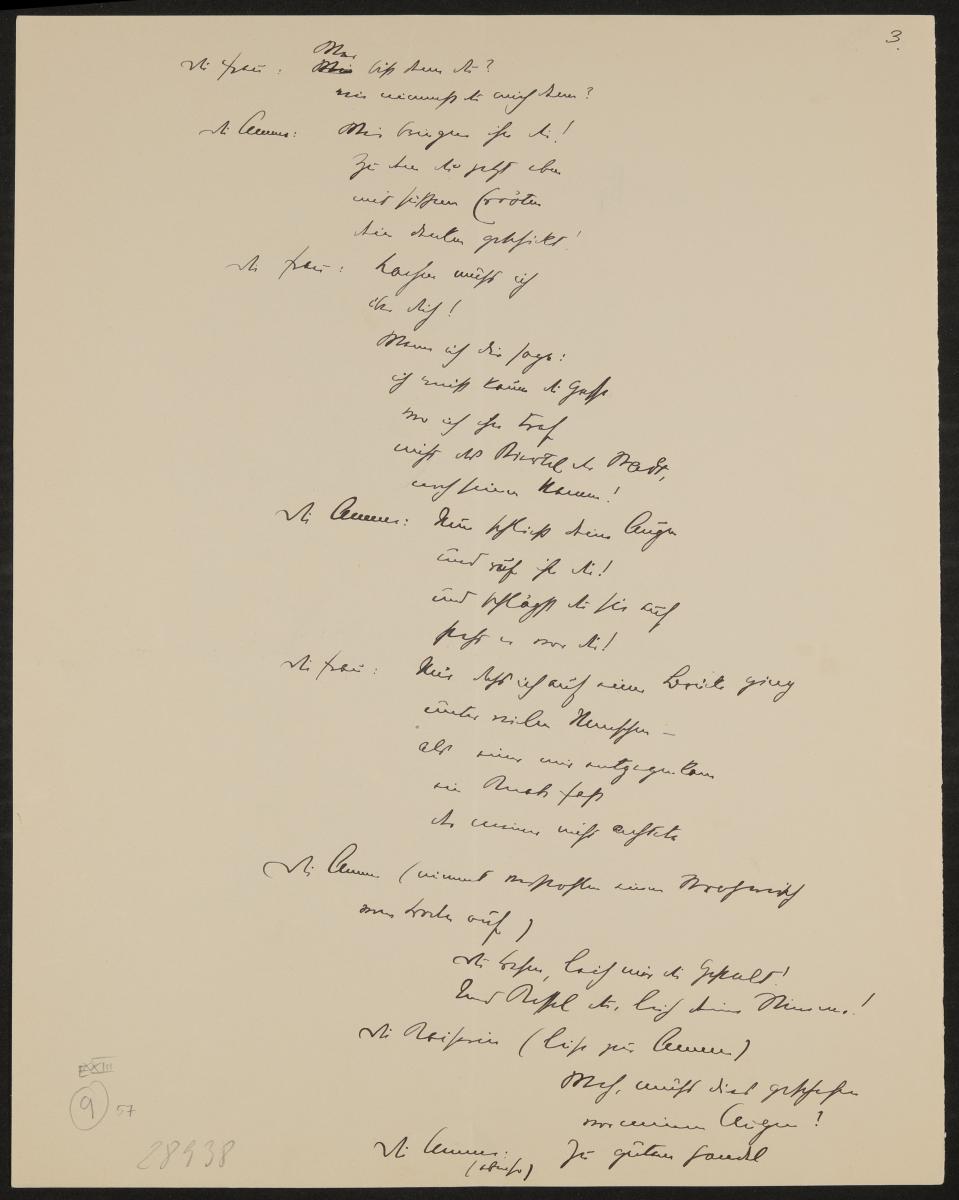 3.
die Frau: Was bist denn du?
wie nimmst du mich denn?
die Amme: Wir bringen ihn dir!
Zu dem du jetzt eben
mit süssem Erröten
dein Denken geschickt!
die Frau: Lachen muss ich
über dich!
Wenn ich dir sage:
ich weiss kaum die Gasse
wo ich ihn traf
nicht das Viertel der Stadt,
noch seinen Namen!
die Amme: Nun schliess deine Augen
und ruf ihn dir!
und schlägst du sie auf
steht er vor dir!
die Frau: Nur dass ich auf einer Brücke ging
unter vielen Menschen –
als einer mir entgegenkam
ein Knabe fast
der meiner nicht achtete
die Amme (nimmt verstohlen einen Strohwisch
vom Boden auf)
du Besen, leih mir die Gestalt!
Und Kessel du, leih deine Stimme!
die Kaiserin (leise zur Amme)
Weh, muss dies geschehen
vor meinen Augen?
die Amme: Zu gutem Handel
(ebenso)
XXIII
9 57
28938